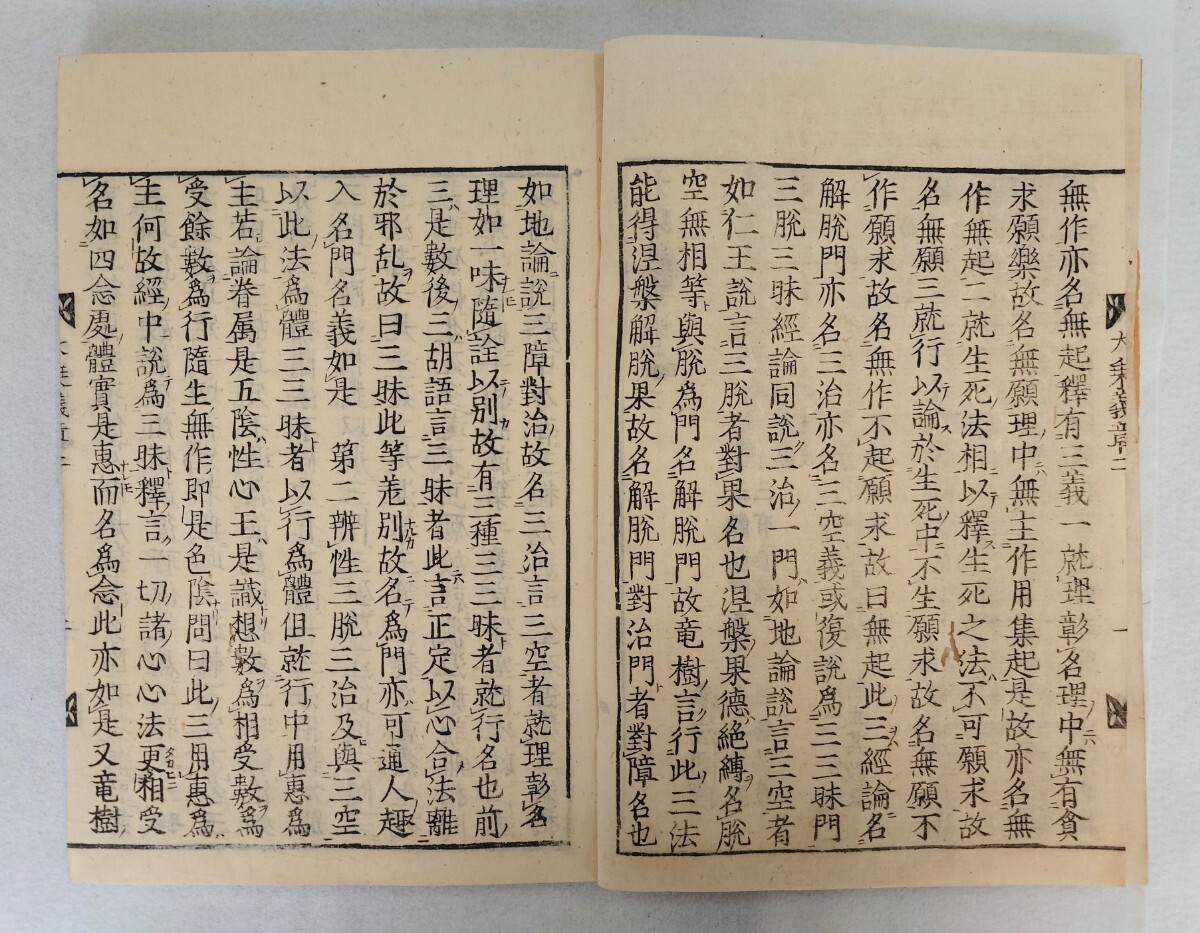 無作亦名無起釋有三義一就理彰名理中無有貪
求願樂故名無願理中無主作用集起是故亦名無
作無起二就生死法相以釋生死之法不可願求故
名無願三就行以論於生死中不生願求故名無願不
作願求故名無作不起願求故曰無起此三經論名
解脫門亦名三治亦名三空義或復說為三三昧門
三脫三昧經論同說三治一門如地論說言三空者
如仁王說言三脫者對果名也涅槃果德絕縛名脫
空無相等與脫為門名解脫門故竜樹言行此三法
能得涅槃解脫果故名解脫門對治門者對障名也
大乘義章二
一
如地論說三障對治故名三治言三空者就理彰名
理如一味隨詮以別故有三種三三昧者就行名也前
三是數後三胡語言三昧者此言正定以心合法離
於邪乱故曰三昧此等差別故名為門亦可通人趣
入名門名義如是 第二辨性三脫三治及與三空
以此法為體三三昧者以行為體但就行中用惠為
主若論眷属是五陰性心王是識想數為相受數為
受餘數為行隨生無作即是色陰問曰此三用惠為
主何故經中說為三昧釋言一切諸心心法更相受
名如四念處體實是惠而名為念此亦如是又竜樹